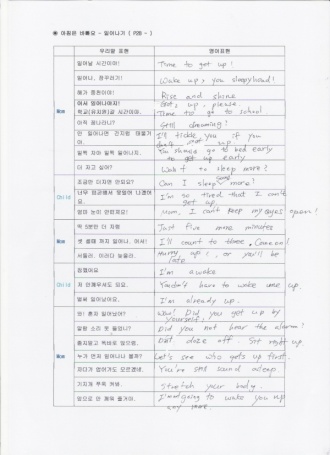 ※ 아침은 바빠요 - 일어나기 ( P.15 ~ )
우리말 표현 영어표현
일어날 시간이야! Time to get up!
일어나, 잠꾸러기! Wake up, you sleepyhead!
해가 중천이야! Rise and shine
어서 일어나야지! Get up, please.
Mom 학교(유치원)갈 시간이야. Time to go to school
아직 꿈나라니? Still dreaming?
안 일어나면 간지럼 태울거야. I'll tickle you if you don't get up
일찍 자야 일찍 일어나지. You should go to bed early to get up early
더 자고 싶어? Want to sleep more?
조금만 더 자면 안돼요? Can I sleep more?
Child 너무 피곤해서 못 일어나겠어요. I'm so tired that I can't get up.
엄마 눈이 안떠져요! Mom, I can't keep my eyes open!
딱 5분만 더 자렴 Just five more minutes
Mom 셋 셀때 까지 일어나, 어서! I'll count to three. Come on!
서둘러, 이러다 늦을라. Hurry up!, or you'll be late
잠깼어요 I'm awake
Child 저 안깨우셔도 되요. You don't have to wake me up.
벌써 일어났어요. I'm already up.
와! 혼자 일어났어? Wow! Did you get up by yourself?
알람 소리 못 들었니? Did you not hear the alarm?
졸지말고 똑바로 앉으렴. Don't doze off. Sit right up
Mom 누가 먼저 일어나나 볼까? Let's see who gets up first.
자다가 업어가도 모르겠네. You're still sound asleep
기지개 쭈욱 켜봐. Stretch your body.
앞으로 안 깨워 줄거야. I'm not going to wake you up any more.